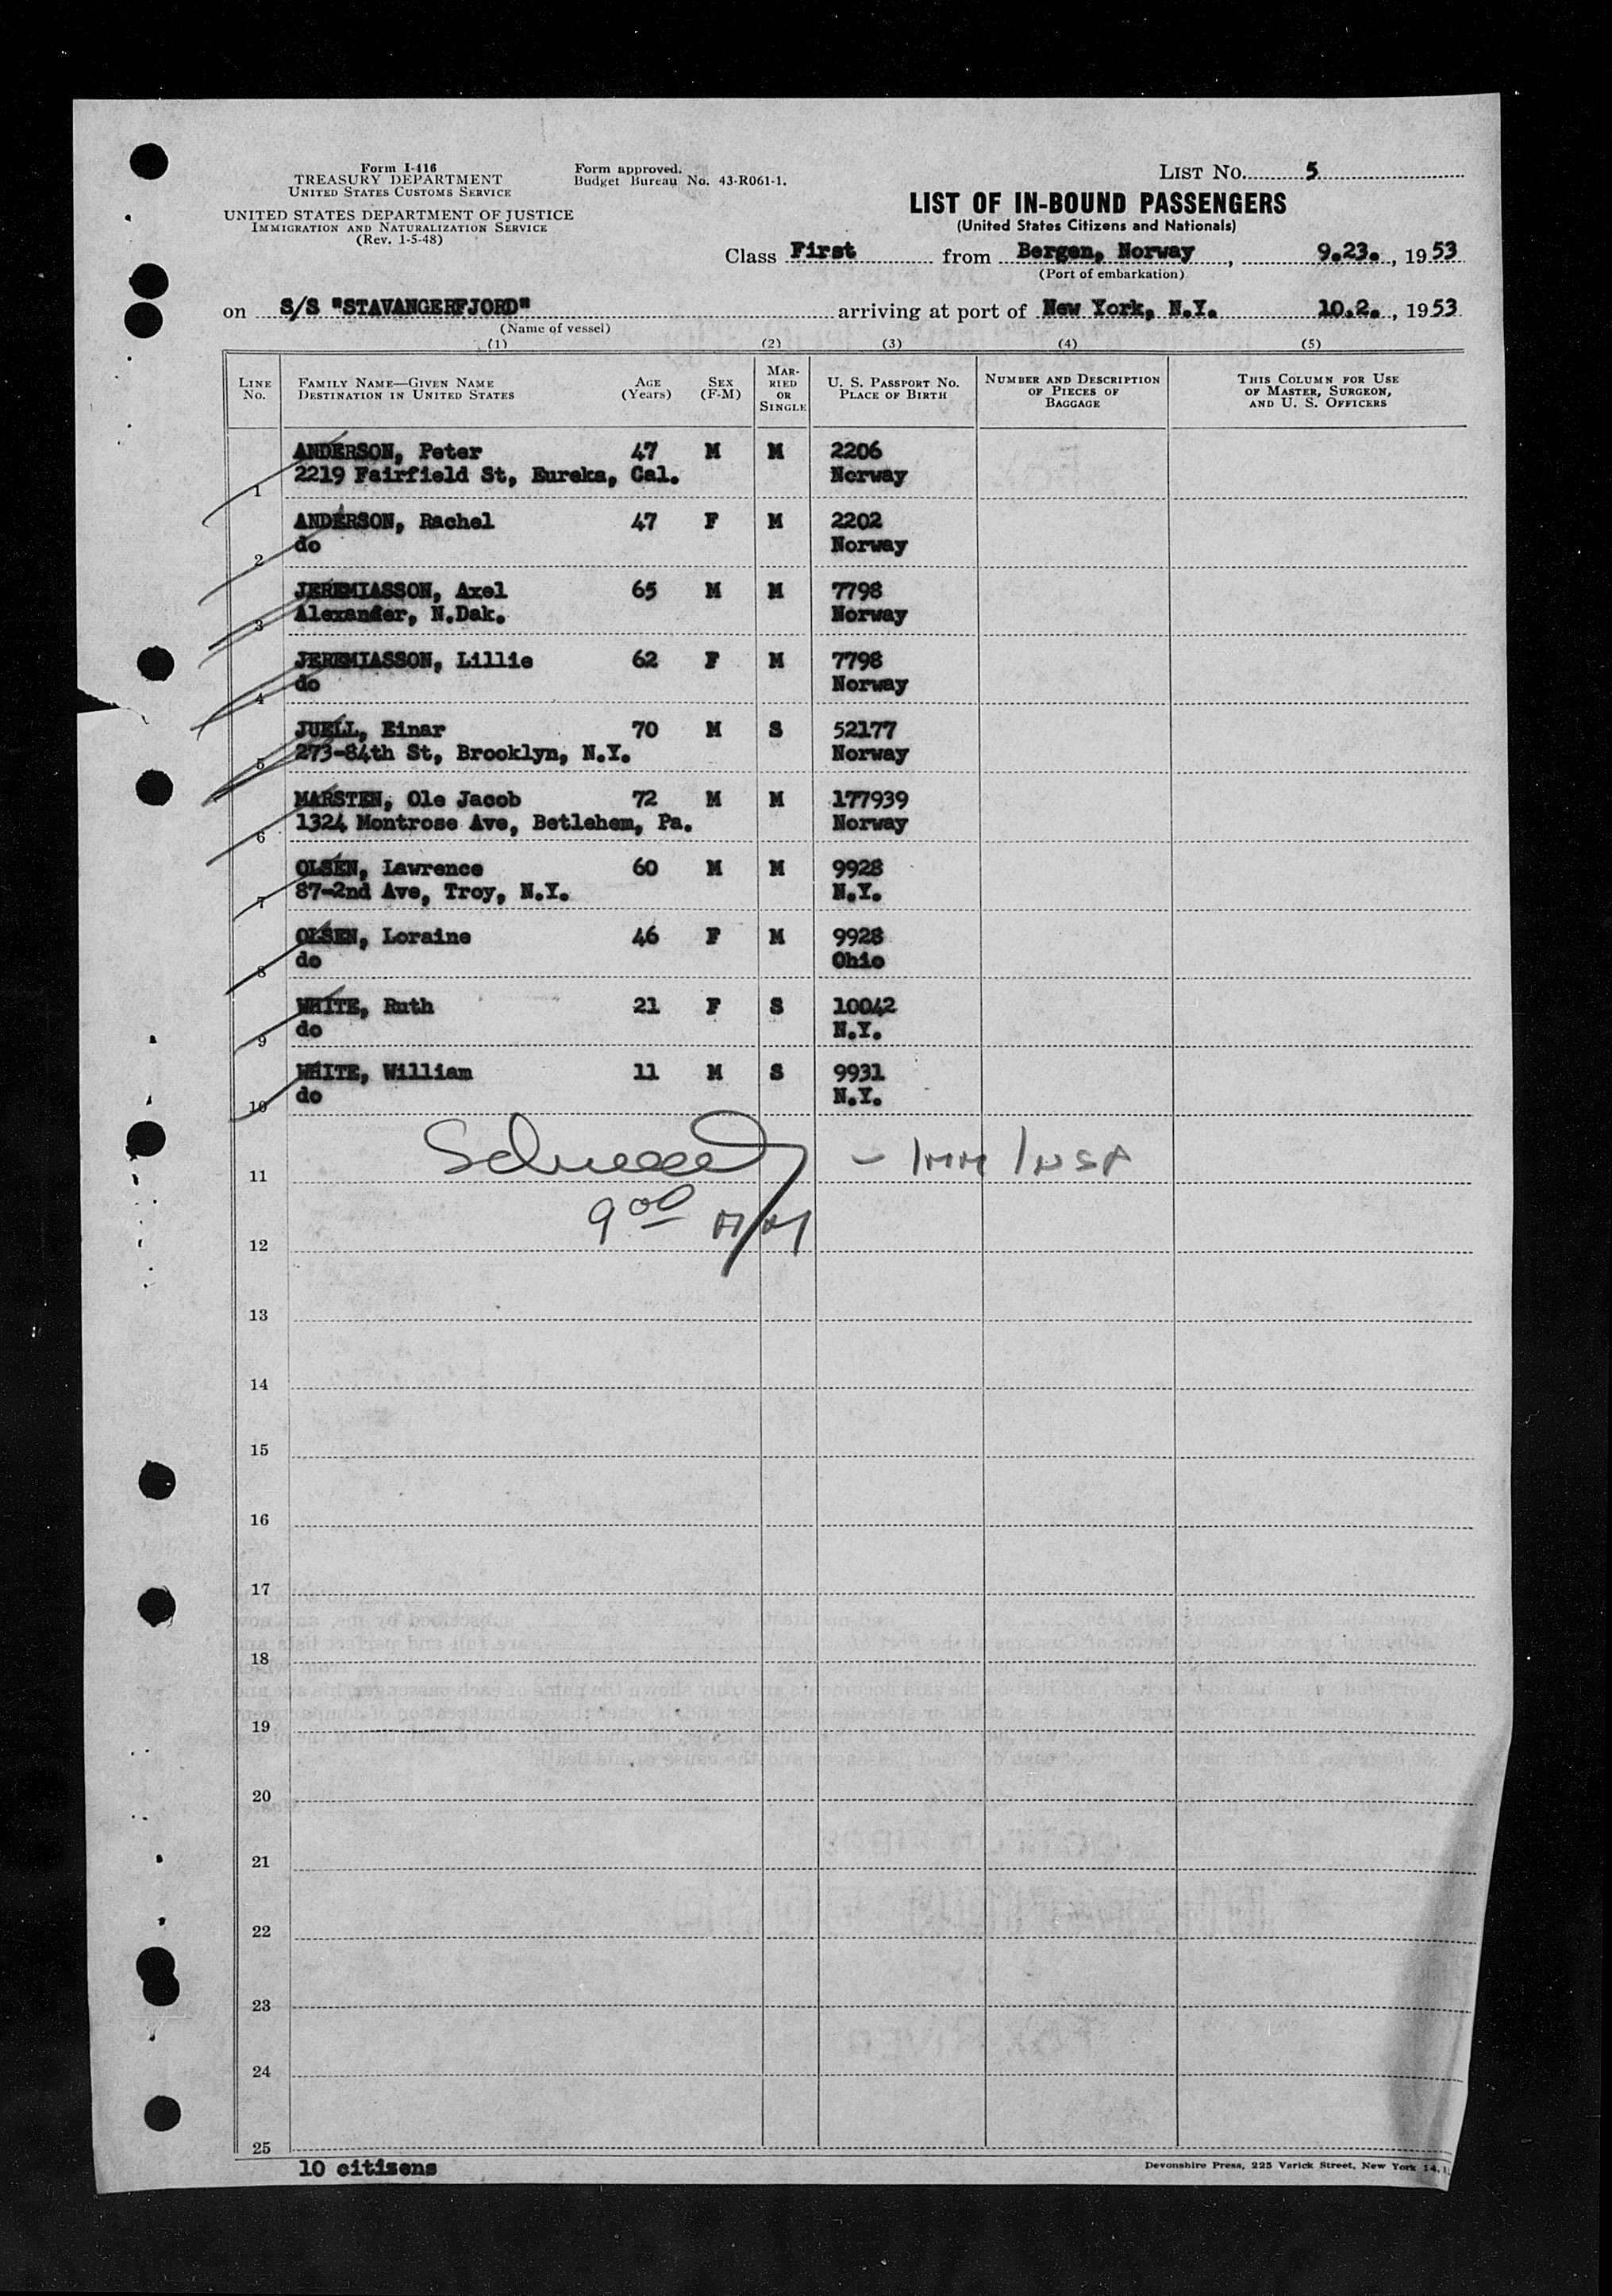 Form I-416
TREASURY DEPARTMENT
UNITED STATES CUSTOMS SERVICE
UNITED STATES DEPARTMENT OF JUSTICE
IMMIGRATION AND NATURALIZATION SERVICE
(Rev. 1-5-48)
Form approved.
Budget Bureau No. 43-R061-1.
LIST No. 5
LIST OF IN-BOUND PASSENGERS
(United States Citizens and Nationals)
Class First from Bergen, Norway, 9.23., 1953
(Port of embarkation)
on S/S "STAVANGERFJORD" arriving at port of New York, N.Y. 10.2., 1953
(Name of vessel)
(1) (2) (3) (4) (5)
LINE No. FAMILY NAME—GIVEN NAME DESTINATION IN UNITED STATES AGE (Years) SEX (F-M) MARRIED OR SINGLE U. S. PASSPORT NO. PLACE OF BIRTH NUMBER AND DESCRIPTION OF PIECES OF BAGGAGE THIS COLUMN FOR USE OF MASTER, SURGEON, AND U. S. OFFICERS
ANDERSON, Peter 47 M M 2206
1 2219 Fairfield St, Eureka, Cal. Norway
ANDERSON, Rachel 47 F M 2202
2 do Norway
JEREMIASSON, Axel 65 M M 7798
3 Alexander, N.Dak. Norway
JEREMIASSON, Lillie 62 F M 7798
4 do Norway
JUELL, Einar 70 M S 52177
5 273-84th St, Brooklyn, N.Y. Norway
MARSTEN, Ole Jacob 72 M M 177939
6 1324 Montrose Ave, Betlehem, Pa. Norway
OLSEN, Lawrence 60 M M 9928
7 87-2nd Ave, Troy, N.Y. N.Y.
OLSEN, Loraine 46 F M 9928
8 do Ohio
WHITE, Ruth 21 F S 10042
9 do N.Y.
WHITE, William 11 M S 9931
10 do N.Y.
11
12 9 00 AM
13
14
15
16
17
18
19
20
21
22
23
24
25
10 citizens
Devonshire Press, 225 Varick Street, New York 14,